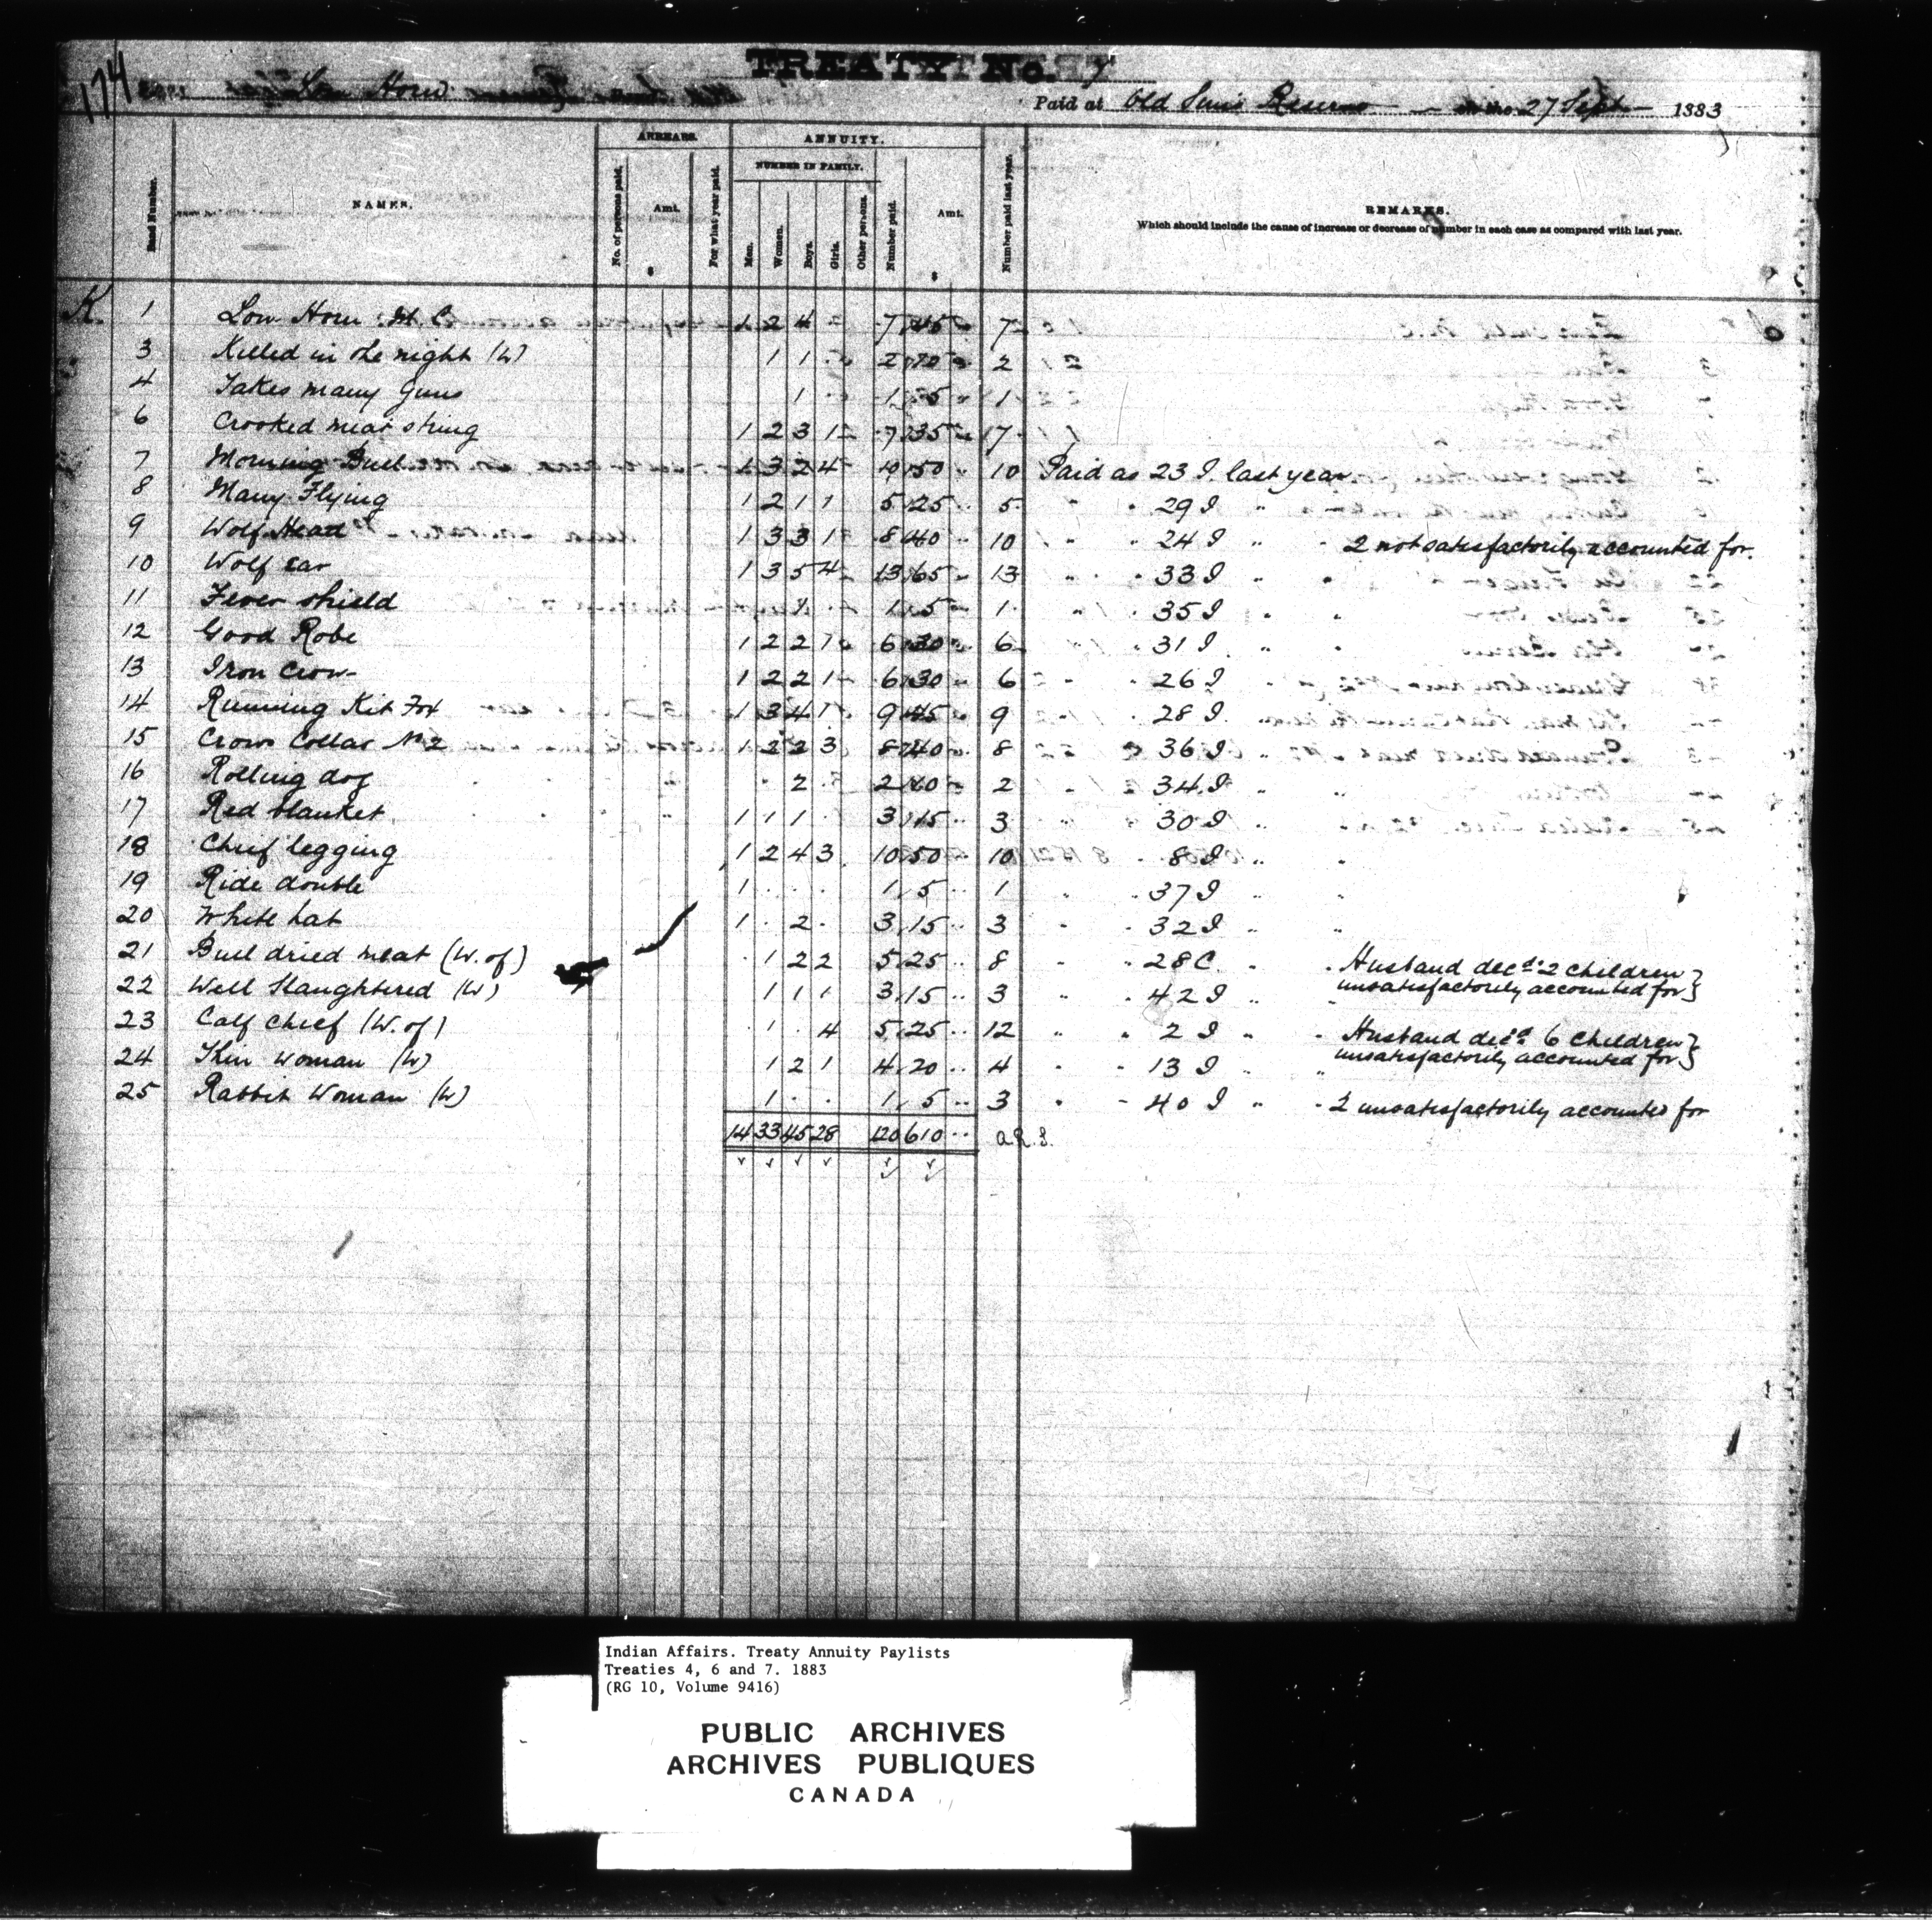 174
TREATY No. 7
Low Horn
Paid at Old Suns Reserve on the 27 Sept 1883
ARREARS. ANNUITY.
NUMBER IN FAMILY.
Band Number. NAMES. No. of persons paid. Amt. $ For what year paid. Men. Women. Boys. Girls. Other persons. Number paid. Amt. $ Number paid last year. REMARKS.
Which should include the cause of increase or decrease of number in each case as compared with last year.
K. 1 Low Horn M.C. 1 2 4 7 45 7
3 Killed in the night (W) 1 1 2 10 2
4 Takes many Guns 1 1 5 1
6 Crooked meat string 1 2 3 1 7 35 17
7 Morning Bull 1 3 2 4 10 50 10 Paid as 23 I. last year
8 Many Flying 1 2 1 1 5 25 5 " " 29 I "
9 Wolf Head 1 3 3 1 8 40 10 " " 24 I " " 2 not satisfactorily accounted for.
10 Wolf ear 1 3 5 4 13 65 13 " " 33 I " "
11 Fever shield 1 1 5 1 " 35 I " "
12 Good Robe 1 2 2 1 6 30 6 " 31 I " "
13 Iron Crow 1 2 2 1 6 30 6 " " 26 I "
14 Running Kit Fox 1 3 4 1 9 45 9 " 28 I "
15 Crow Collar No 2 1 2 2 3 8 40 8 " 36 I "
16 Rolling dog 2 2 10 2 " 34 I " "
17 Red blanket 1 1 1 3 15 3 " " 30 I " "
18 Chief legging 1 2 4 3 10 50 10 " 8 I " "
19 Ride double 1 1 5 1 " " 37 I " "
20 White hat 1 2 3 15 3 " " 32 I " "
21 Bull dried meat (W. of) 1 2 2 5 25 8 " " 28 C. " " Husband decd. 2 children }
22 Well Slaughtered (W) 1 1 1 3 15 3 " " 42 I " unsatisfactorily accounted for }
23 Calf Chief (W. of) 1 4 5 25 12 " " 2 I " " Husband decd 6 Children }
24 Thin Woman (W) 1 2 1 4 20 4 " " 13 I " " unsatisfactorily accounted for }
25 Rabbit Woman (W) 1 1 5 3 " " 40 I " " 2 unsatisfactorily accounted for
14 33 45 28 120 610
Indian Affairs. Treaty Annuity Paylists
Treaties 4, 6 and 7. 1883
(RG 10, Volume 9416)
PUBLIC ARCHIVES
ARCHIVES PUBLIQUES
CANADA